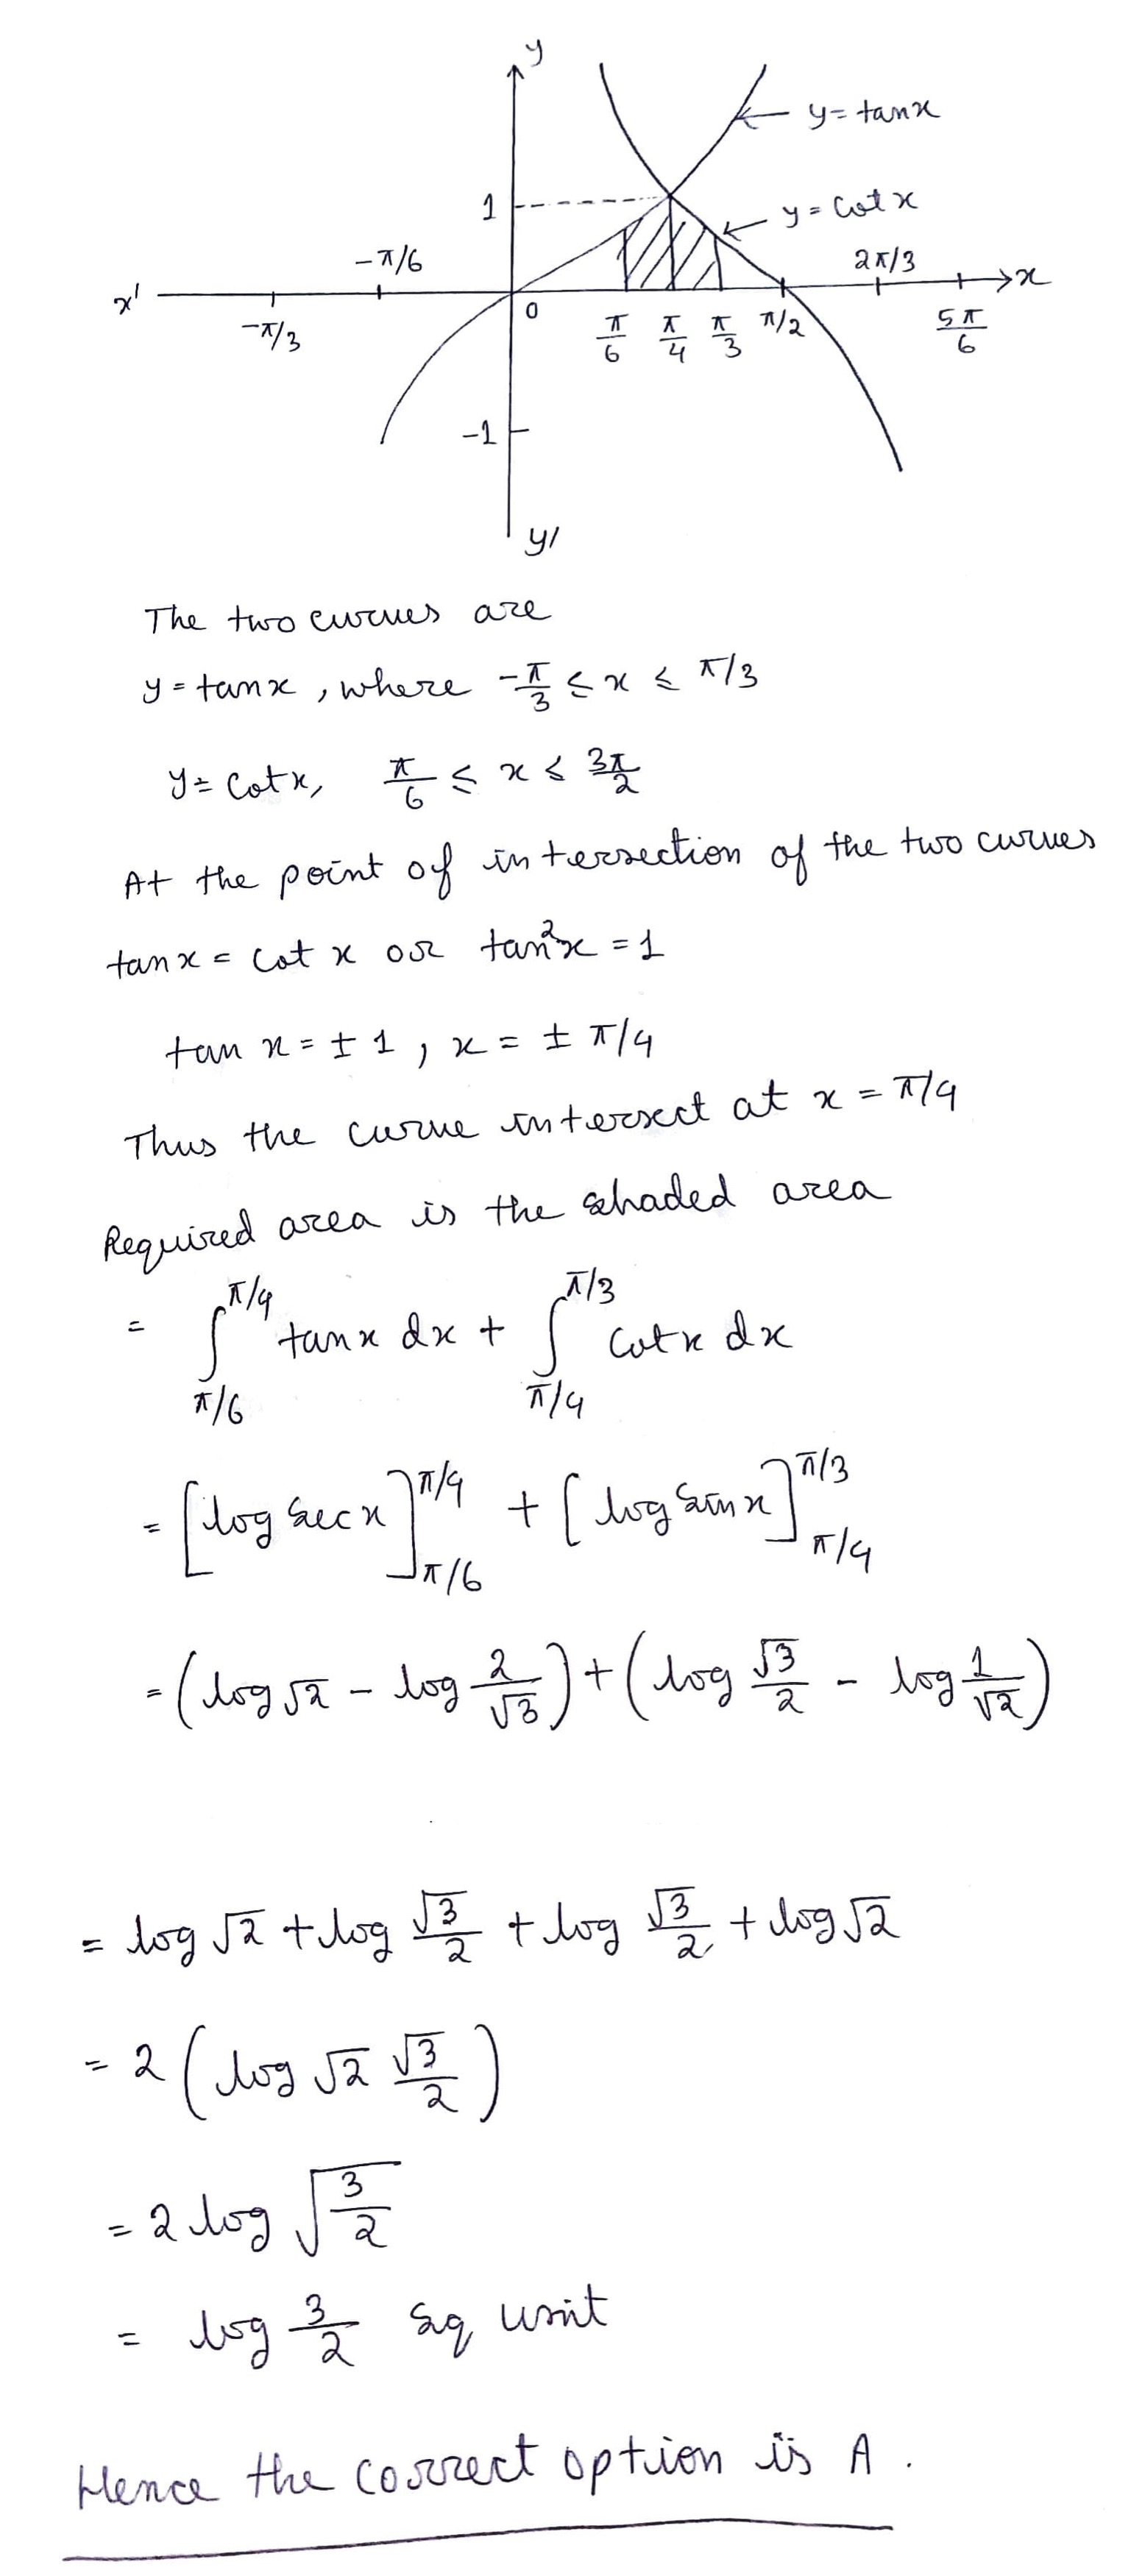 y
y = tanx
1
y = cotx
-π/6
2π/3
x'
x
0
-π/3
π/6 π/4 π/3 π/2
5π/6
-1
y'
The two curves are
y = tanx , where -π/3 ≤ x ≤ π/3
y = cotx, π/6 ≤ x ≤ 3π/2
At the point of intersection of the two curves
tanx = cot x or tan²x = 1
tan x = ± 1 , x = ± π/4
Thus the curve intersect at x = π/4
Required area is the shaded area
= ∫_{π/6}^{π/4} tanx dx + ∫_{π/4}^{π/3} cotx dx
= [log sec x]_{π/6}^{π/4} + [log sin x]_{π/4}^{π/3}
= (log √2 - log 2/√3) + (log √3/2 - log 1/√2)
= log √2 + log √3/2 + log √3/2 + log √2
= 2 (log √2 √3/2)
= 2 log √(3/2)
= log 3/2 sq unit
Hence the correct option is A .